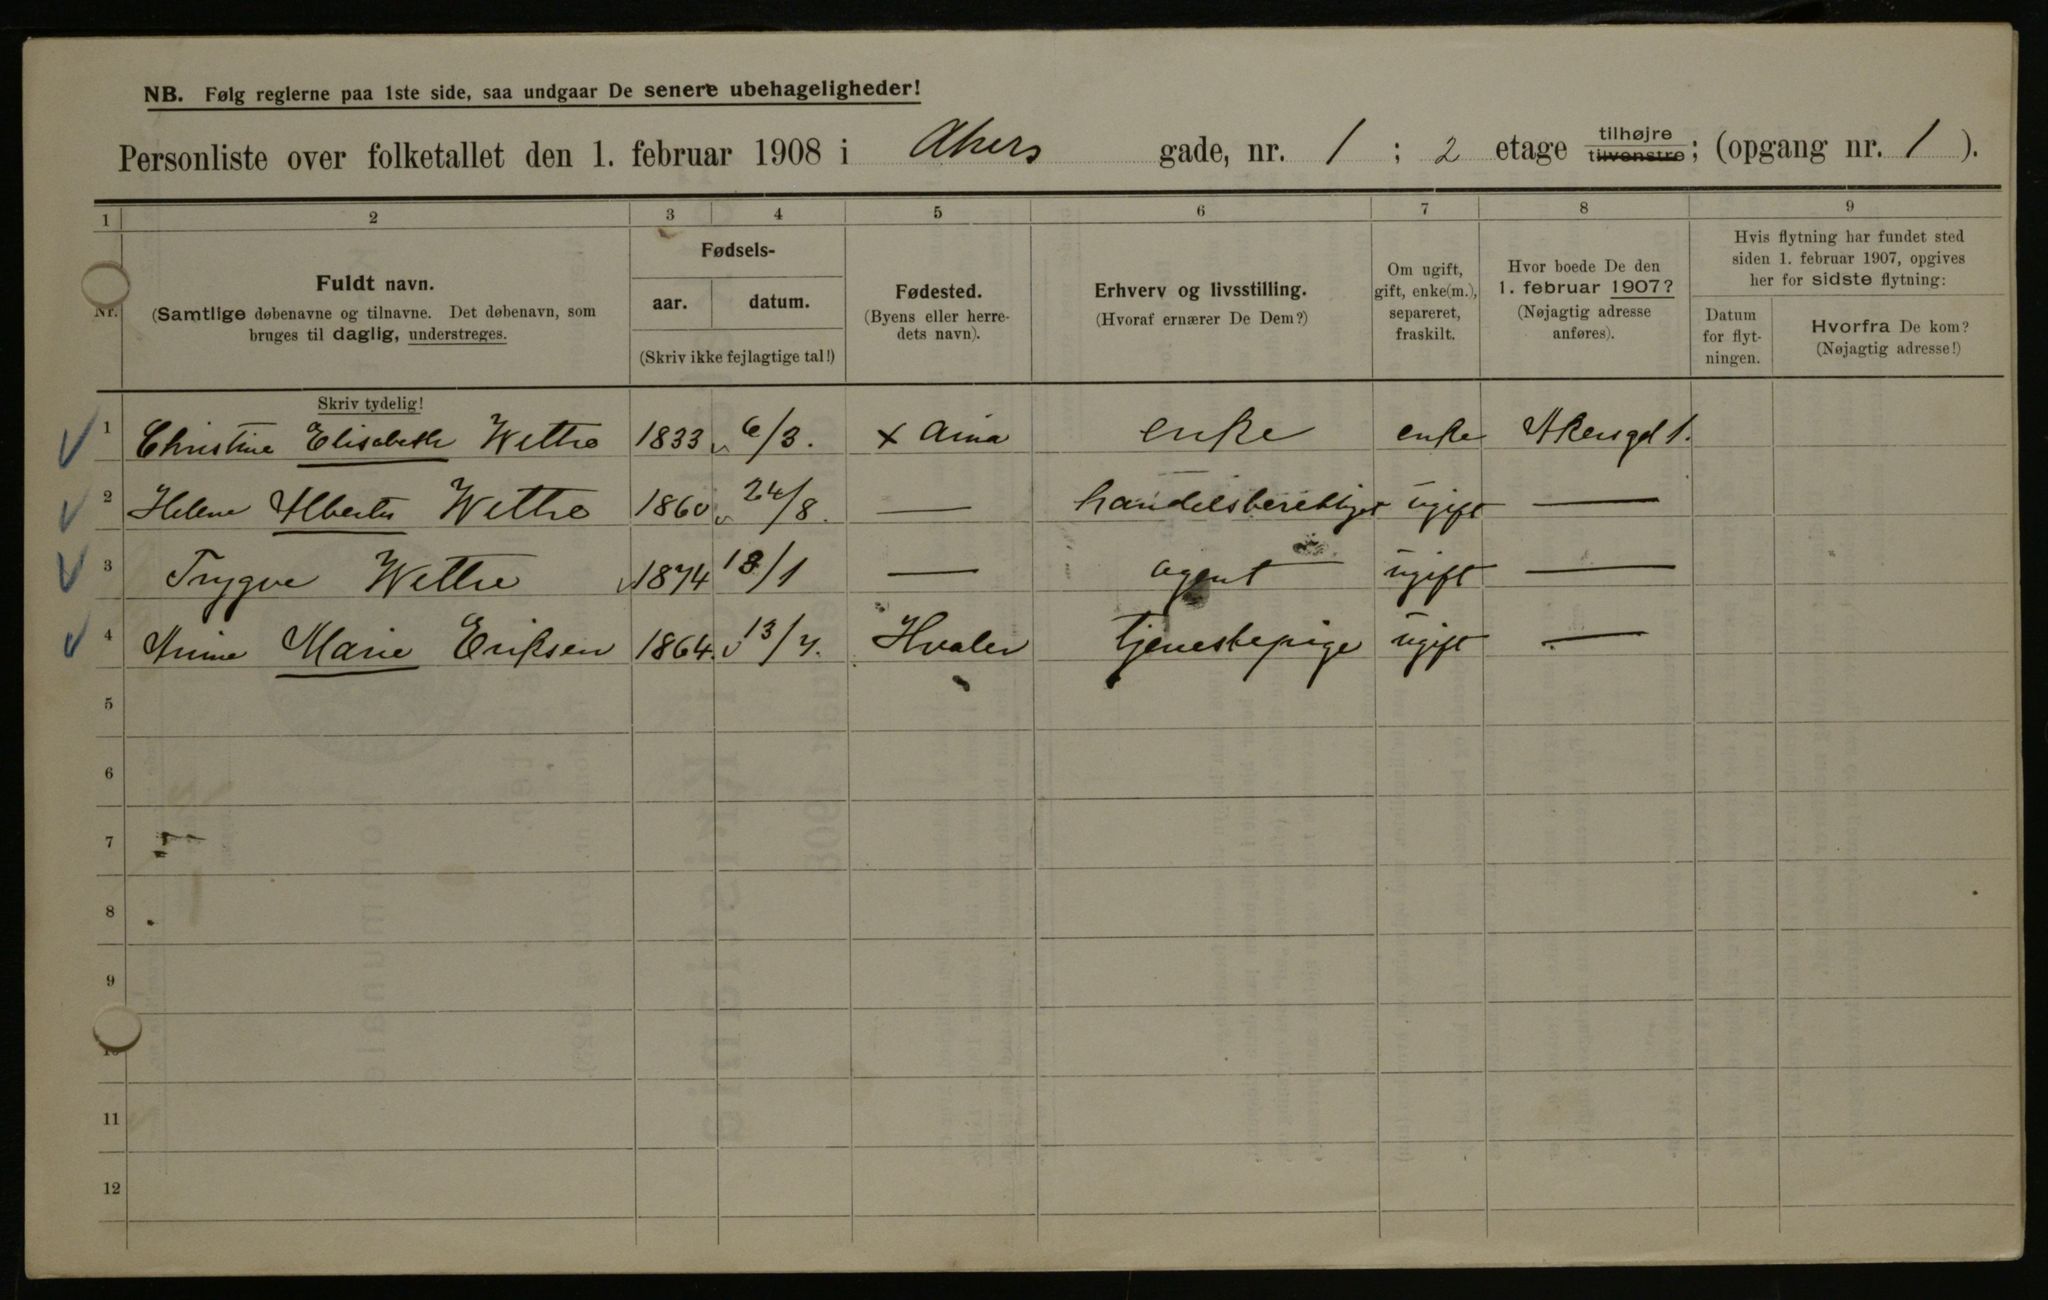 NB. Følg reglerne paa 1ste side, saa undgaar De senere ubehageligheder!
Personliste over folketallet den 1. februar 1908 i Akers gade, nr. 1 ; 2 etage tilhøjre tilvenstre ; (opgang nr. 1 ).
1 2 3 4 5 6 7 8 9
Nr. Fuldt navn. (Samtlige døbenavne og tilnavne. Det døbenavn, som bruges til daglig, understreges.
Fødsels- aar. datum. (Skriv ikke fejlagtige tal!)
Fødested. (Byens eller herredets navn).
Erhverv og livsstilling. (Hvoraf ernærer De Dem?)
Om ugift, gift, enke(m.), separeret, fraskilt.
Hvor boede De den 1. februar 1907? (Nøjagtig adresse anføres).
Hvis flytning har fundet sted siden 1. februar 1907, opgives her for sidste flytning:
Datum for flytningen. Hvorfra De kom? (Nøjagtig adresse!)
Skriv tydelig!
1 Christine Elisabeth Wettre 1833 6/3. x enke enke Akersgd 1.
2 Helene Wettre 1860 24/8. — handelsberettiget ugift —
3 Trygve Wettre 1874 /1 — agent ugift —
4 Marie Eriksen 1864. 13/7. Hvaler tjenestepige ugift —
5
6
7
8
9
10
11
12